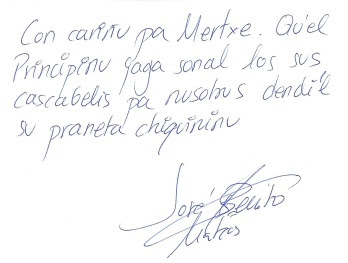 Con cariñu pa Mertxe. Qu'el
Principinu jaga sonal los sus
cascabelis pa nusotrus dendi'l
su praneta chiquininu
José Benito
Mateos